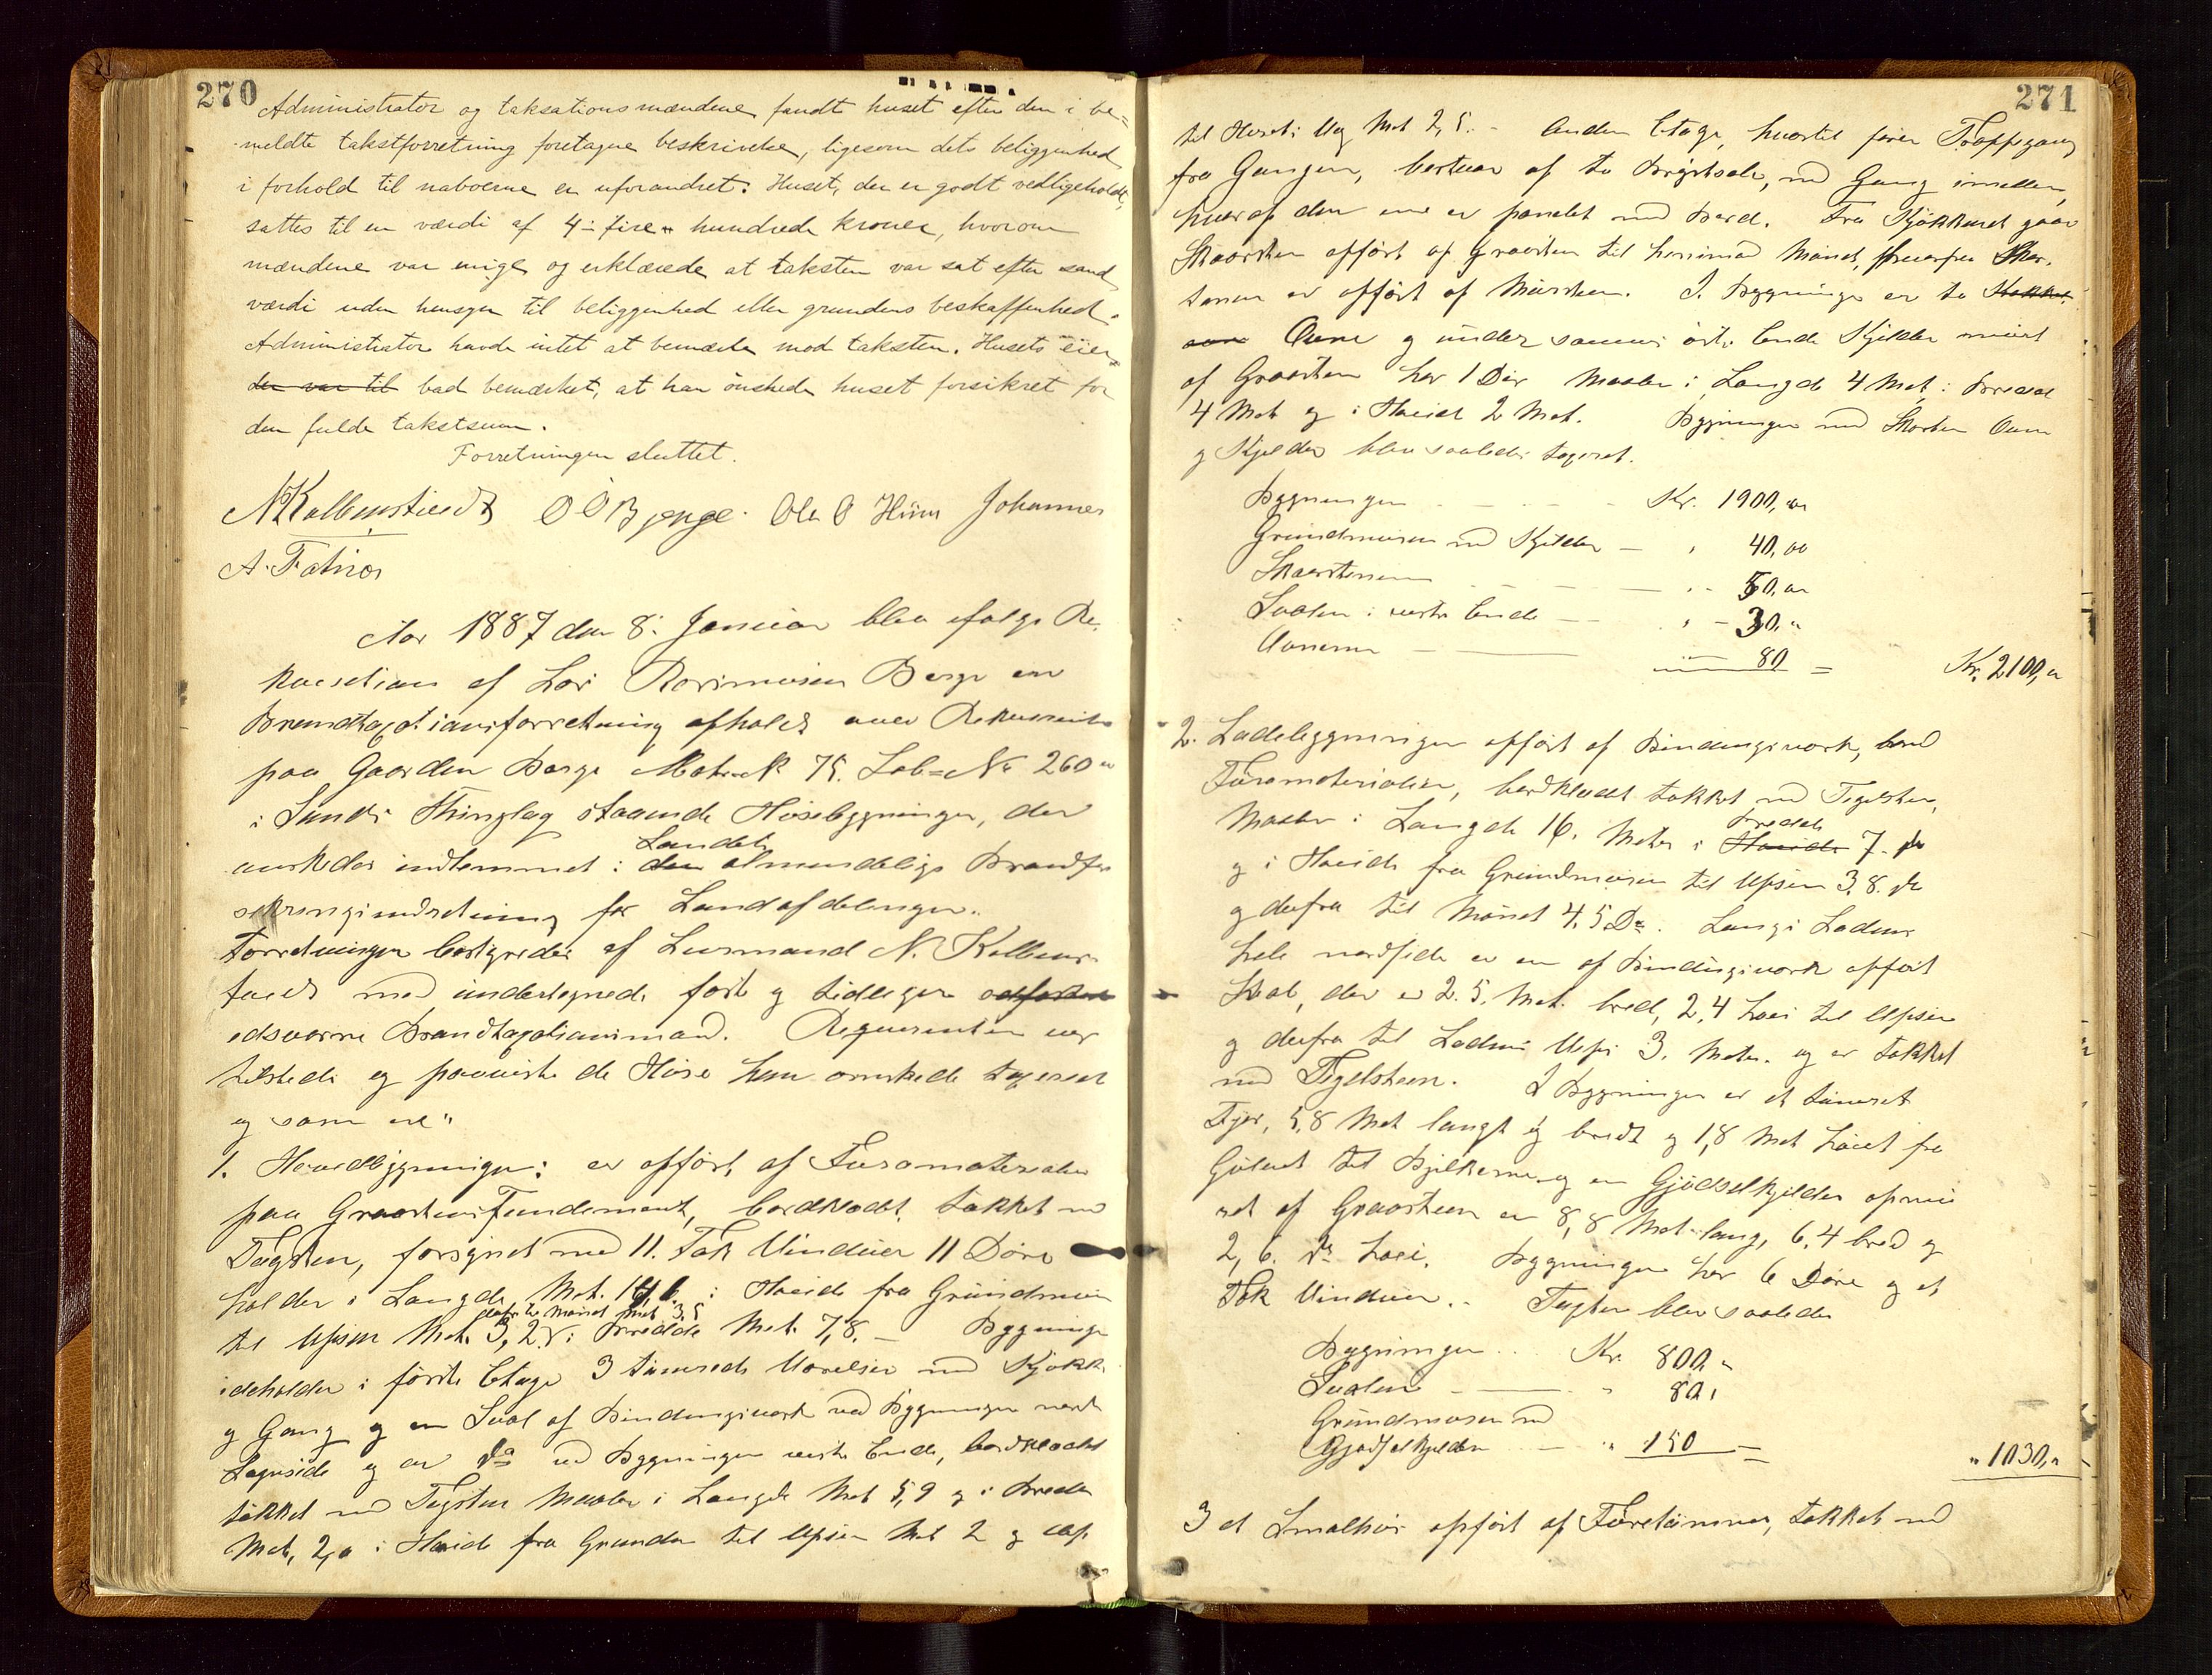 270
Administrator og taksationsmændene fandt huset efter den i be=
meldte takstforretning foretagne beskrivelse, ligesom dets beliggenhed
i forhold til naboerne er uforandret. Huset, der er godt vedligeholdt,
sattes til en værdi af 4 - fire - hundrede kroner, hvorom
mændene var enige og erklærede at taksten var sat efter sand
værdi uden hensyn til beliggenhed eller grundens beskaffenhed.
Administrator havde intet at bemærke mod taksten. Husets eier
der var til bad bemærket, at han ønskede huset forsikret for
den fulde takstsum.
Forretningen sluttet.
Ole O Johannes
A.
Aar 1887 den 8. Januar blev ifølge Re-
kvisition af Berge en
Brandtaxtionsforretning afholdt over
paa Gaarden Berge Matr. N. 75. Løb=No 260 a
i Sunds Thinglag staaende Husebygninger, der
Landets
ønskedes indlemmet i den almindelige Brandfor
sikringsindretning for Landafdelingen.
Forretningen bestyredes af Lensmand N. Kolben-
med undertegnede faste og tidligere
edsvorne Brandtaxtionsmænd. Requirenten var
tilstede og paaviste de Huse han ønskede taxeret
og som ere"
1. Hovedbygningen: er opført af Furamaterialer
paa Graastensfundament, bordklædt, tækket md
Tagsten, forsynet med 11. Fak Vinduer 11 Døre
holder i Længde Met. 14,6 i Høide fra Grundmuren
derfra til Mønet Met 3,5
til Upsen Met. 3,2 i Bredde Met. 7,8. – Bygningen
ideholder i første Etage 3 tømrede Værelser md Kjøkk.
og Gang og en Sval af Bindingsværk ved Bygningen
side og en Do ved Bygningen vestre Ende, bordklædt
tækket md Tagsten Maaler i Længde Met 5,9 og i Bredde
Met, 2,0 i Høide fra Grunden til Upsen Met 2 og op
271
til Husets Ups Met 2,5. – Anden Etage, hvortil fører Trappegang
fra Gangen, bestaar af to md Gang imellem,
hvoraf den ene er panelet med Bord. Fra Kjøkkenet gaar
Skorsten opført af Graasten til henimod Mønet, hvorfra Skor-
stenen er opført af Mursten. I Bygningen er to
Ovne og under sammes østre Ende Kjelder muret
af Graasten har 1 Dør Maaler i Længde 4 Met i Bredde
4 Met og i Høide 2 Met. Bygningen med Skorsten Ovne
og Kjelder blev saaledes taxeret.
Bygningen - - - Kr. 1900,00
Grundmuren md Kjelder – " 40,00
Skorstenen - - - " 50,00
Svalen i vestre Ende – " 30,"
Ovnene – 80 = Kr. 2100,"
2. Ladebygningen opført af Bindingsværk, med
Furamaterialier, bordklædt tækket md Tegelsten,
Bredde
Maaler i Længde 16. Meter i Høide 7. do
og i Høide fra Grundmuren til Upsen 3,8. do
og derfra til Mønet 4,5 Do. Langs Ladens
hele nordside er en af Bindingsværk opført
Sval, der er 2.5. Met. bred, 2,4 høi til Upsen
og derfra til Ladens Ups 3. Meter. og er tækket
med Tegelsteen. I Bygningen er et tømret
Fjøs, 5,8 Met langt og bredt og 1,8 Met høiet fra
Gulvet til Bjelkerne og en Gjødselkjelder opmu
ret af Graasteen er 8,8 Met. lang, 6,4 bred og
2,6. do høi. Bygningen har 6 Døre og et
Fak Vinduer. – Taxten blev saaledes
Bygningen . . Kr. 800,"
Svalen – " 80,"
Grundmuren md
Gjødselkjelder – " 150 = " 1030,"
3 et Smalhus opført af Furetømmer, tækket md